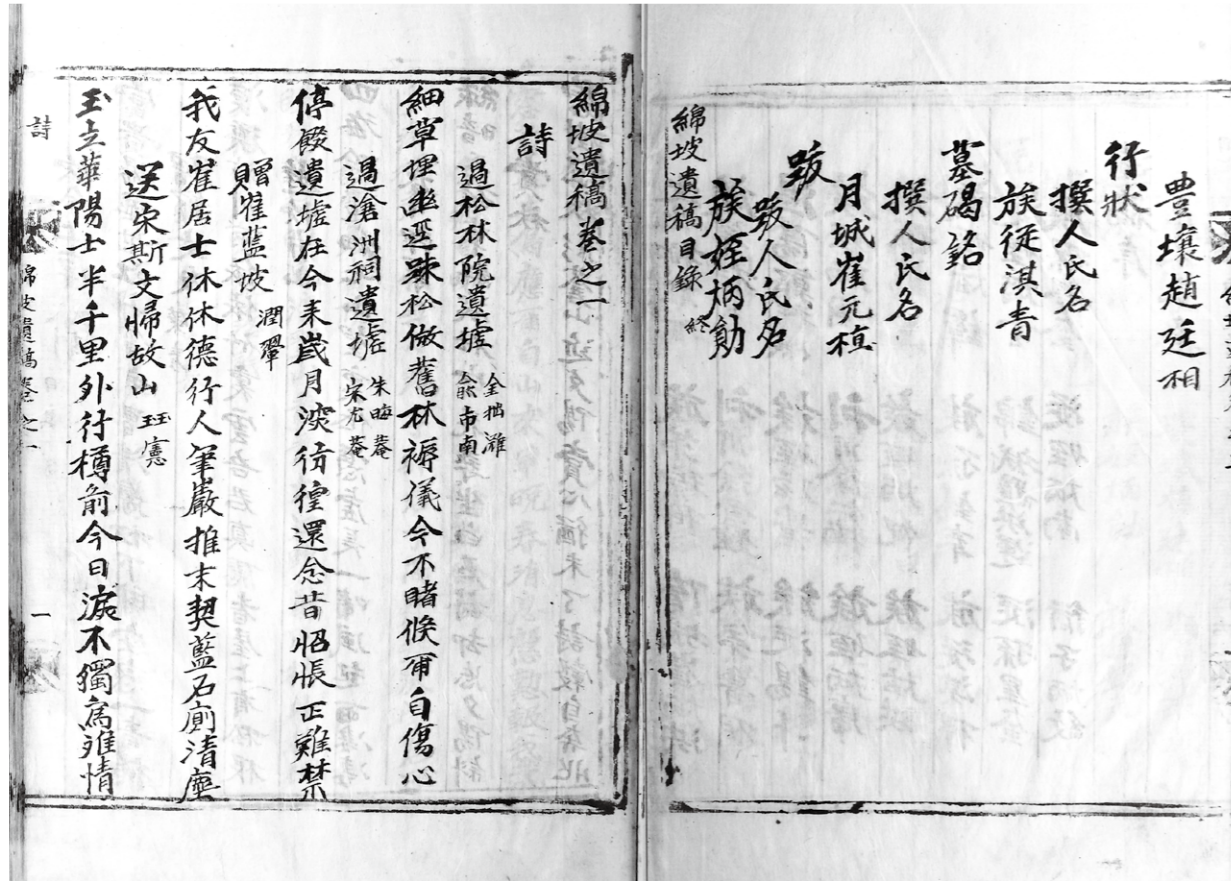 豊壤趙廷相
行狀
撰人氏名
族從淇青
墓碣銘
撰人氏名
月城崔元植
跋
跋人氏名
族姪炳勛
綿坡遺稿目錄 終
綿坡遺稿卷之一
詩
過松林院遺墟 金拙灘 兪市南
細草埋幽逕踈松倣舊林褥儀今不睹俟甭自傷心
過滄洲祠遺墟 朱晦菴 宋尤菴
停餟遺墟在今來歲月深彷徨還念昔怊悵正難禁
贈崔藍坡 潤翬
我友崔居士休休德行人筆嚴推末契藍石廟清塵
送宋斯文歸故山 珏憲
玉立華陽士半千里外行樽前今日淚不獨爲離情
詩
綿坡遺稿卷之一
一